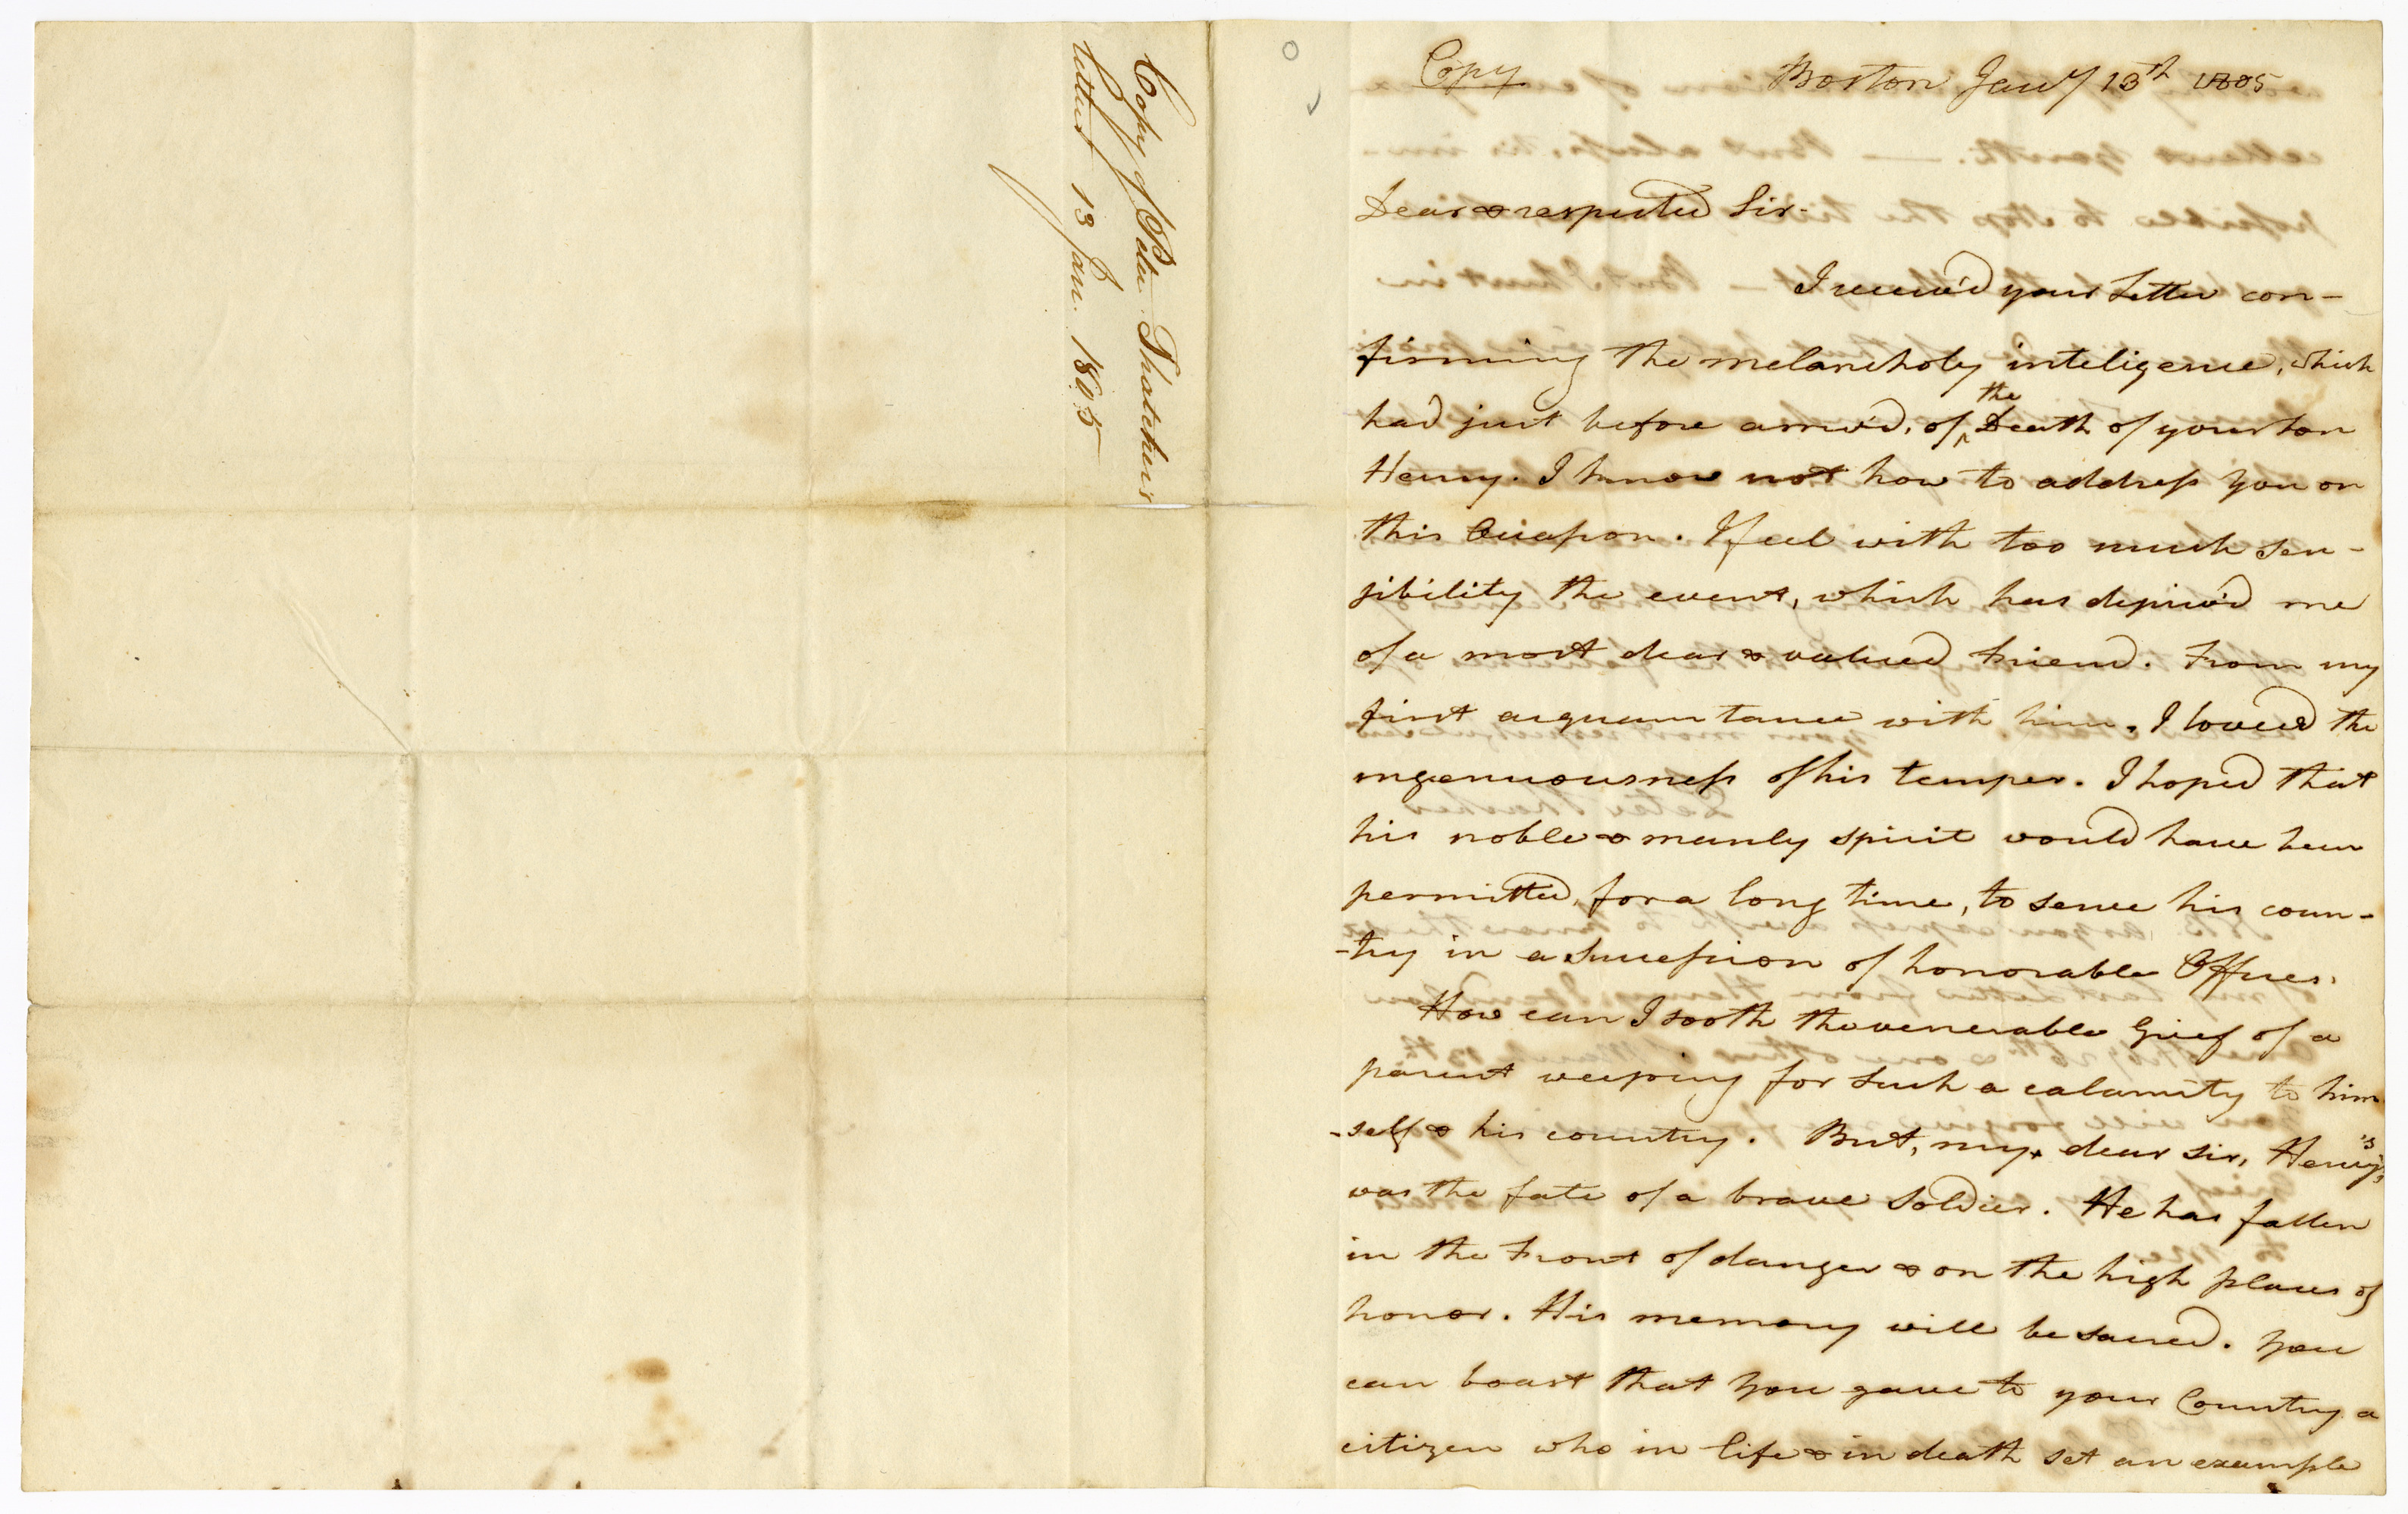 Copy of Peter Thatcher's
letter 13 Jan. 1805
Copy Boston Jany 13th 1805
Dear & respected Sir.
I receiv'd your Letter con-
firming the melancholy inteligence, which
had just before arriv'd, of the Death of your son
Henry. I know not how to address you on
this Occasion. I feel with too much sen-
sibility the event, which has depriv'd me
of a most dear & valued Friend. From my
first acquaintance with him, I loved the
ingenuousness of his temper. I hoped that
his noble & manly spirit would have been
permitted, for a long time, to serve his coun-
-try in a Succession of honorable Offices.
How can I sooth the venerable Grief of a
parent weeping for such a calamity to him
-self & his country. But, my dear sir, Henry's
was the fate of a brave Soldier. He has fallen
in the Front of danger & on the high places of
honor. His memory will be sacred. You
can boast that you gave to your Country a
citizen who in life & in death set an example